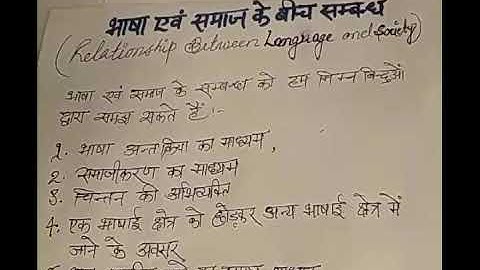 भाषा एवं समाज के बीच सम्बन्ध
(Relationship Between Language and Society)
भाषा एवं समाज के सम्बन्ध को हम निम्न बिन्दुओं
द्वारा समझ सकते हैं।:-
1. भाषा अन्तःक्रिया का माध्यम,
2. समाजीकरण का माध्यम
3. चिन्तन की अभिव्यक्ति
4. एक भाषाई क्षेत्र को छोड़कर अन्य भाषाई क्षेत्र में
जाने के अवसर